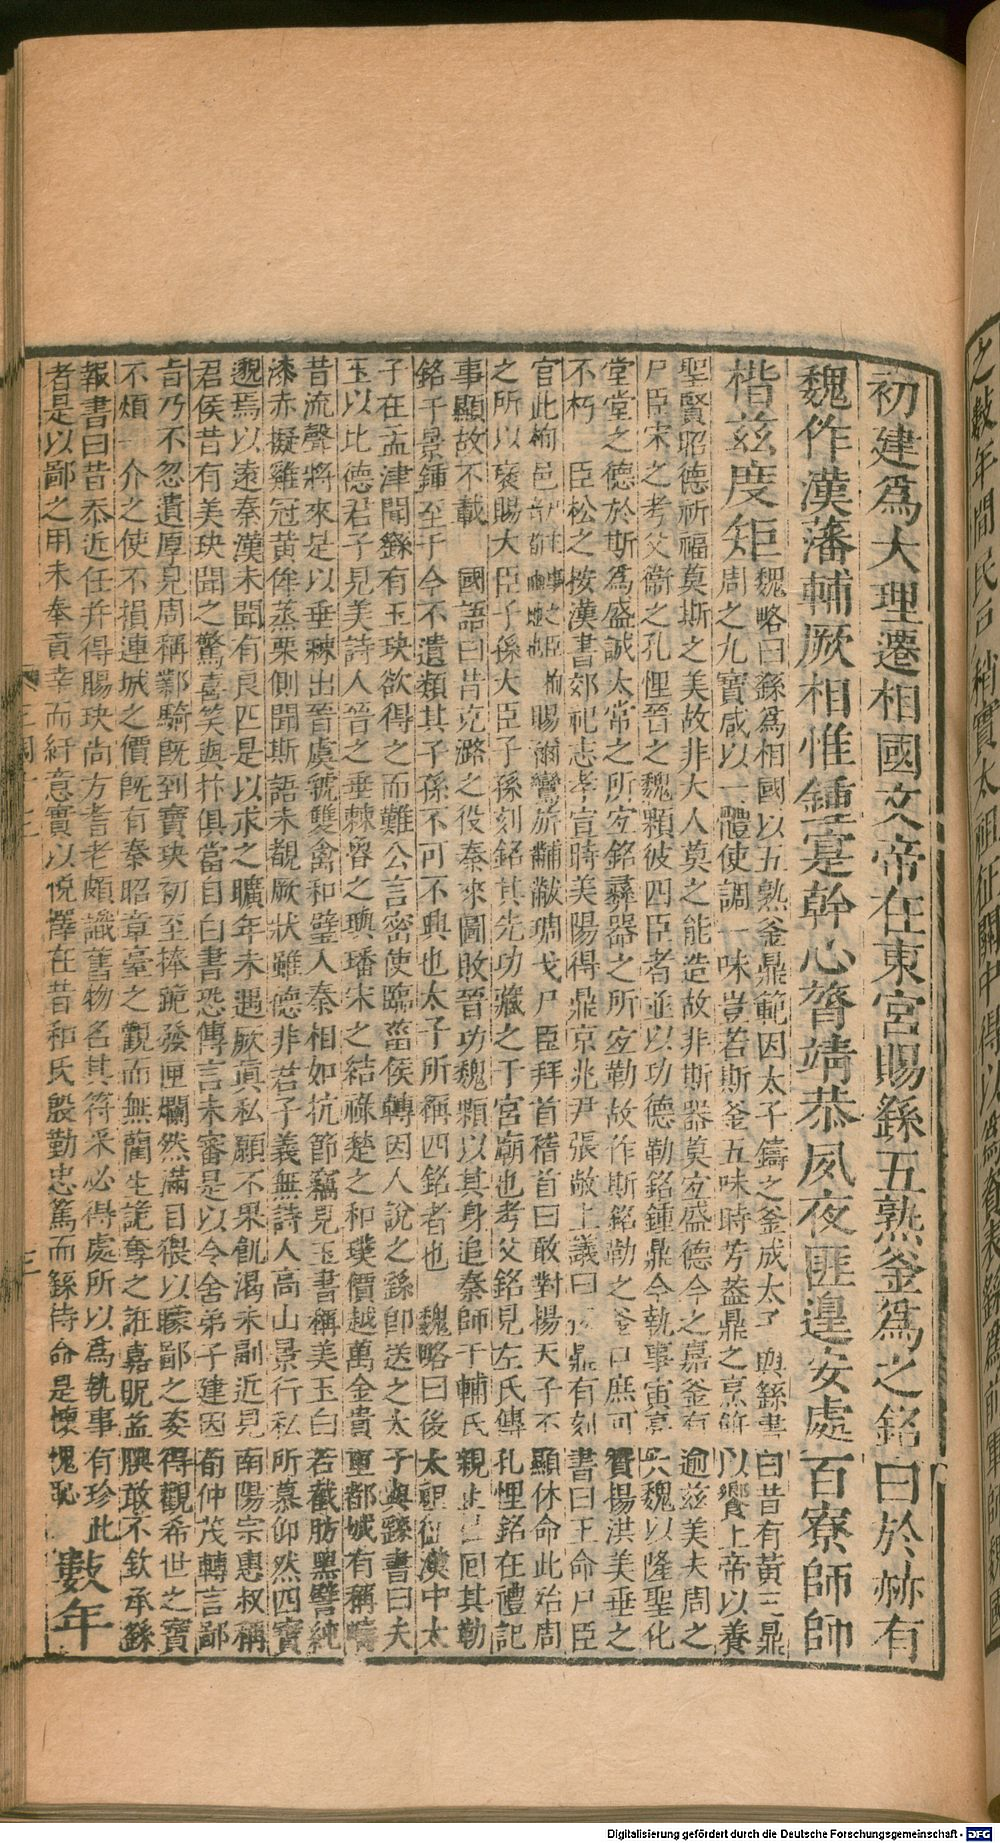 初建爲大理遷相國文帝在東宮賜繇五熟釜爲之銘曰於赫有
魏作漢藩輔厥相惟鍾寔幹心膂靖恭夙夜匪遑安處百寮師師
楷茲度矩
魏略曰繇爲相國以五熟釜鼎範因太子鑄之釜成太子與繇書曰昔有黃三鼎
周之九寶咸以一體使調一味豈若斯釜五味時芳蓋鼎之烹飪以饗上帝以養
聖賢昭德祈福莫斯之美故非大人莫之能造故非斯器莫宜盛德今之嘉釜有逾茲美夫周之
尸臣宋之考父衞之孔悝晉之魏顆彼四臣者並以功德勒銘鍾鼎今執事寅亮大魏以隆聖化
堂堂之德於斯爲盛誠太常之所宜銘彝器之所宜勒故作斯銘勒之釜口庶可贊揚洪美垂之
不朽 臣松之按漢書郊祀志孝宣時美陽得鼎京兆尹張敞上議曰 鼎有刻書曰王命尸臣
官此栒邑 賜爾鸞旂黼黻琱戈尸臣拜首稽首曰敢對揚天子丕顯休命此殆周
之所以襃賜大臣子孫大臣子孫刻銘其先功藏之于宮廟也考父銘見左氏傳孔悝銘在禮記
事顯故不載 國語曰昔克潞之役秦來圖敗晉功魏顆以其身追秦師于輔氏親止杜回其勒
銘于景鍾至于今不遺類其子孫不可不興也太子所稱四銘者也 魏略曰後太祖征漢中太
子在孟津聞繇有玉玦欲得之而難公言密使臨菑侯轉因人說之繇卽送之太子與繇書曰夫
玉以比德君子見美詩人晉之垂棘魯之璵璠宋之結祿楚之和璞價越萬金貴重都城有稱疇
昔流聲將來是以垂棘出晉虞虢雙禽和璧入秦相如抗節竊見玉書稱美玉白若截肪黑譬純
漆赤擬雞冠黃侔蒸栗側聞斯語未覩厥狀雖德非君子義無詩人高山景行私所慕仰然四寶
邈焉以遠秦漢未聞有良匹是以求之曠年未遇厥眞私願不果飢渴未副近見南陽宗惠叔稱
君侯昔有美玦聞之驚喜笑與抃俱當自白書恐傳言未審是以令舍弟子建因荀仲茂轉言鄙
旨乃不忽遺厚見周稱鄴騎旣到寶玦初至捧跪發匣爛然滿目猥以矇鄙之姿得觀希世之寶
不煩一介之使不損連城之價旣有秦昭章臺之觀而無藺生詭奪之誑嘉貺益腆敢不欽承繇
報書曰昔忝近任幷得賜玦尚方耆老頗識舊物名其符采必得處所以爲執事有珍此
者是以鄙之用未奉貢幸而紆意實以悅懌在昔和氏殷勤忠篤而繇待命是懷愧恥
數年
Digitalisierung gefördert durch die Deutsche Forschungsgemeinschaft - DFG